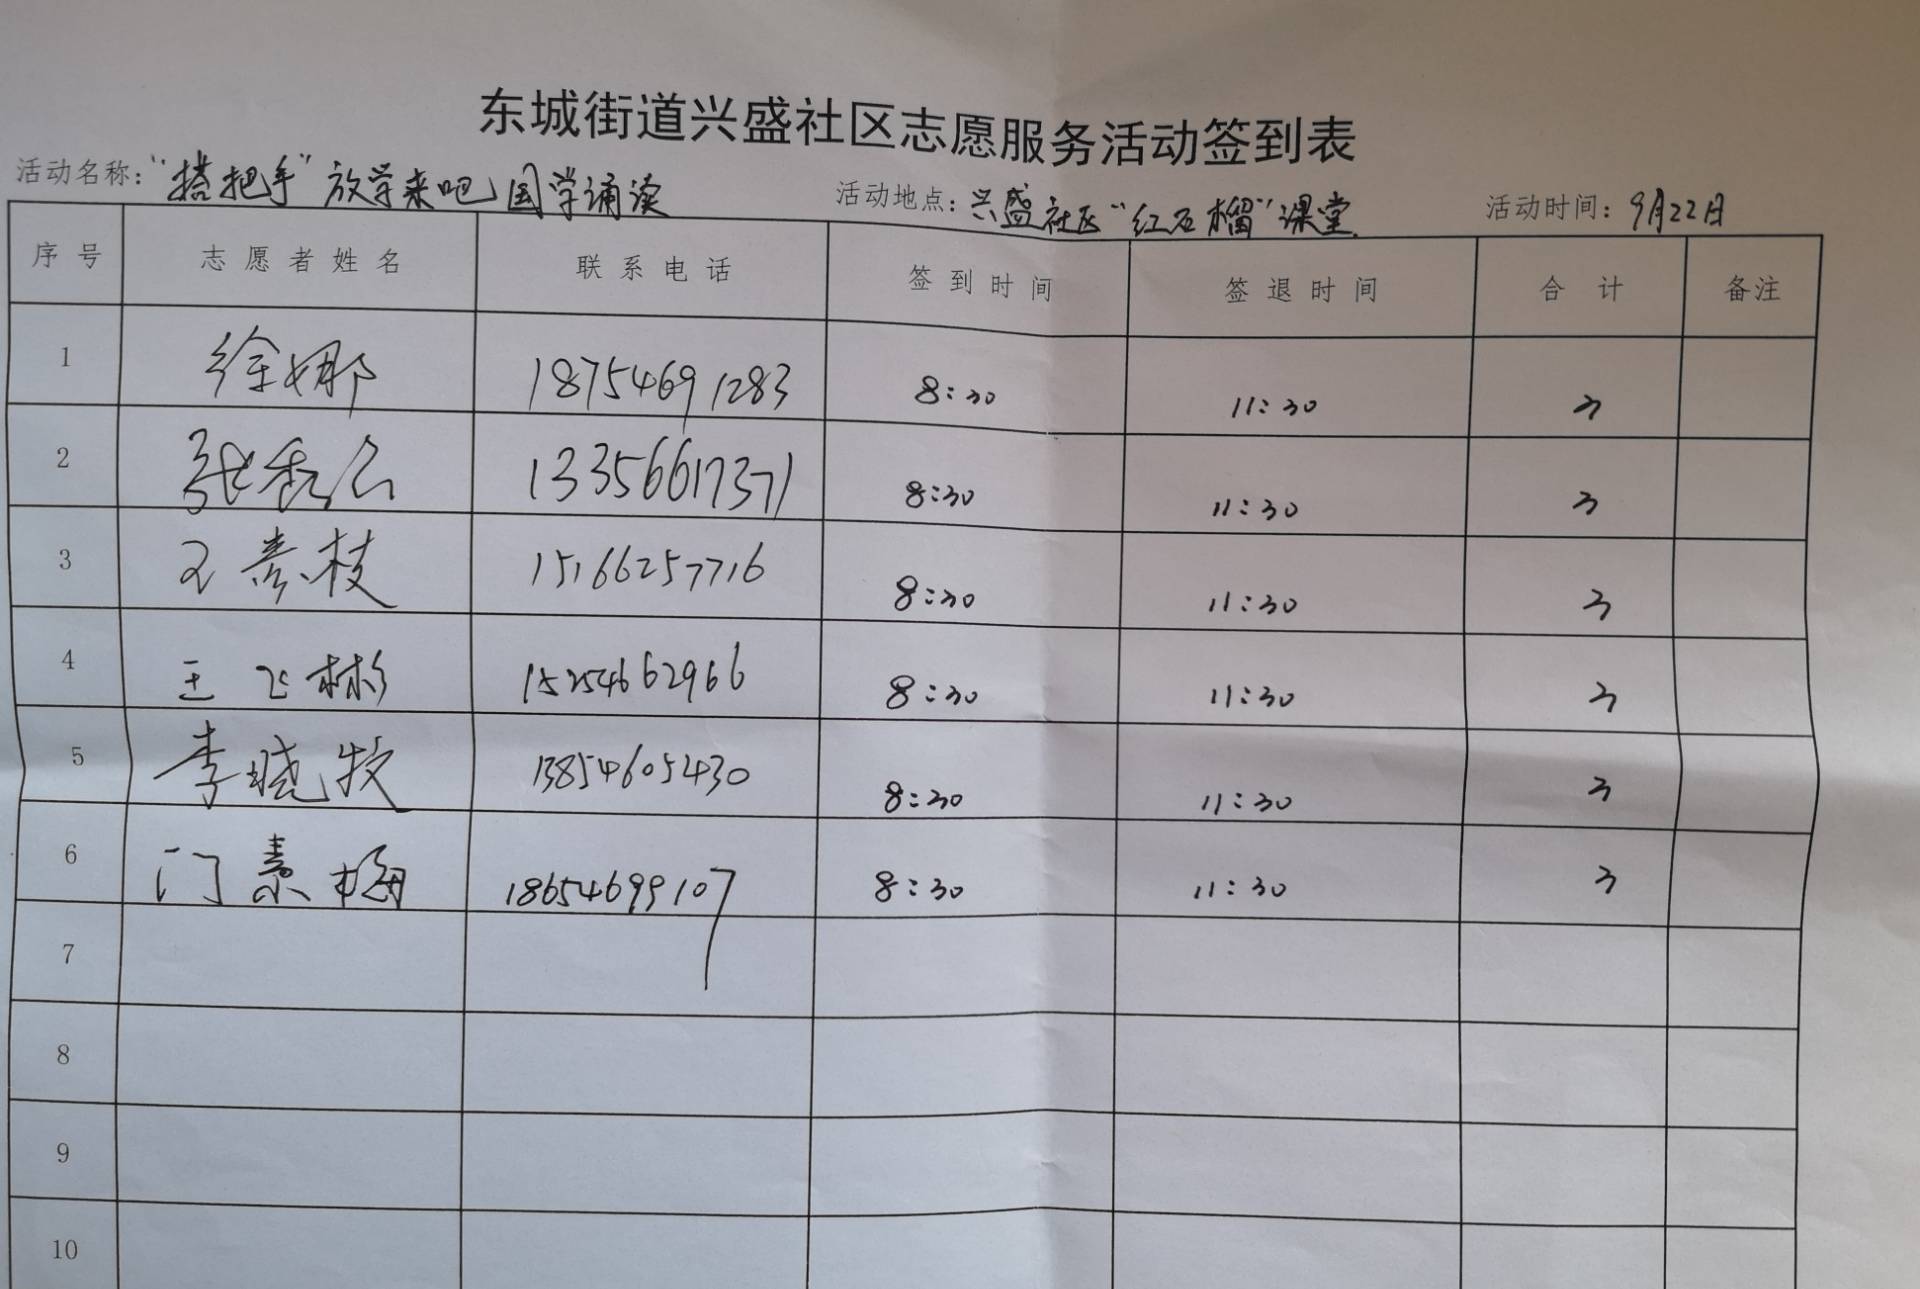 东城街道兴盛社区志愿服务活动签到表
活动名称：“搭把手”放学来吧国学诵读 活动地点：兴盛社区“红石榴”课堂. 活动时间：9月22日
序号 志愿者姓名 联系电话 签到时间 签退时间 合计 备注
1 徐娜 18754691283 8:30 11:30 3
2 张 13356617371 8:30 11:30 3
3 王素枝 15166257716 8:30 11:30 3
4 王飞彬 15254662966 8:30 11:30 3
5 李晓牧 13854605430 8:30 11:30 3
6 门素梅 18654699107 8:30 11:30 3
7
8
9
10